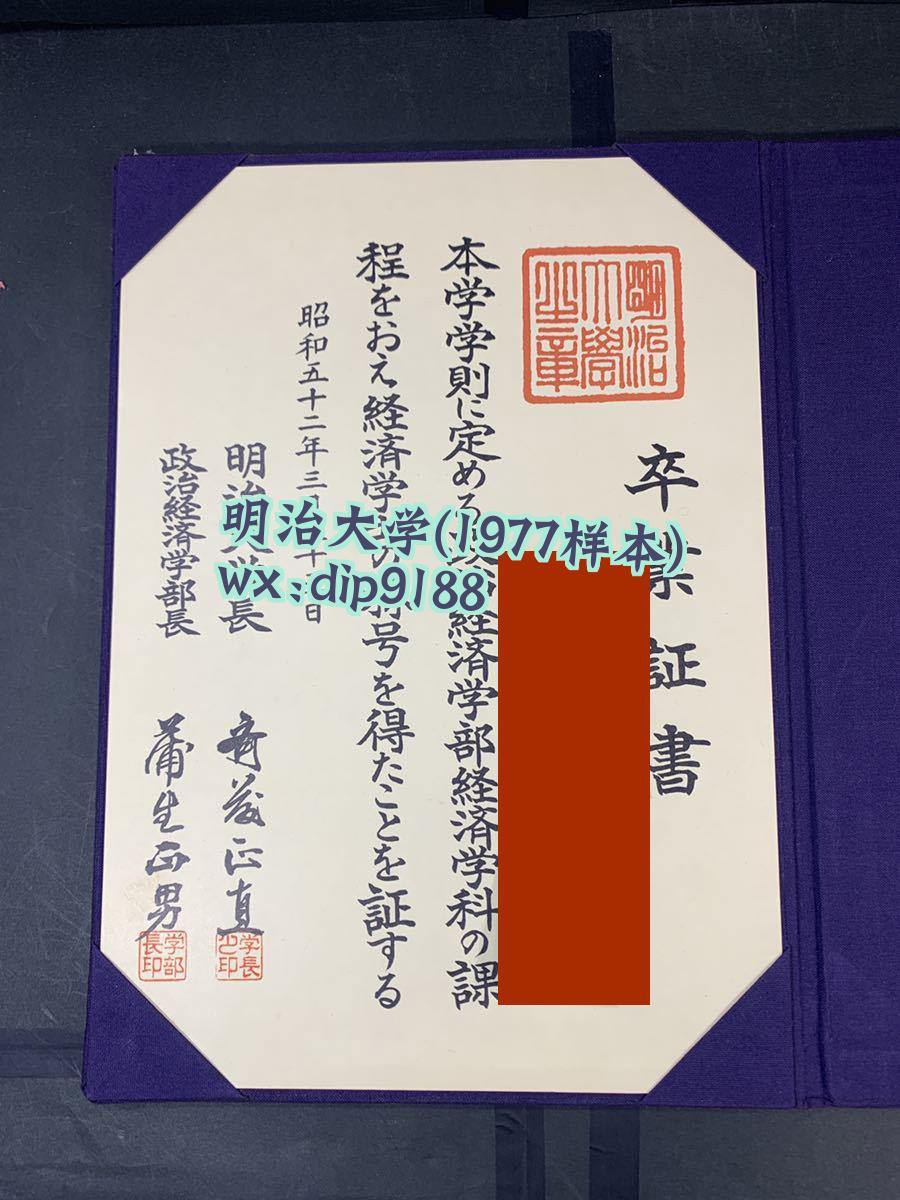 明治大學之章
卒業証書
本学学則に定める政治経済学部経済学科の課
程をおえ経済学士の称号を得たことを証する
昭和五十二年三月十日
明治大学長 斉藤正直
学長之印
政治経済学部長 蒲生正男
学部長印
明治大学(1977样本)
wx:dip9188